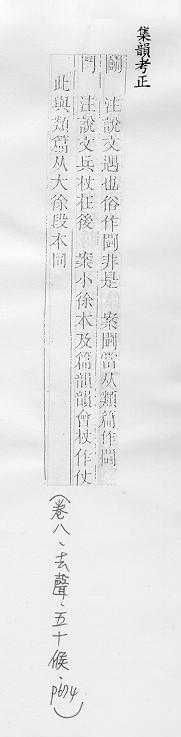 集韻考正
鬭 注說文遇也俗作鬪非是 案鬪當从類篇作鬦
鬥 注說文兵杖在後 案小徐本及篇韻韻會杖作仗
此與類篇从大徐段本同
(卷八、去聲、五十候、p674)